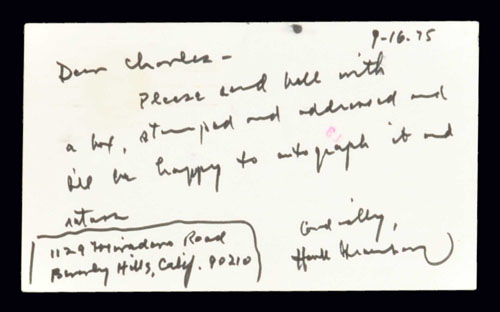 9-16-75
Dear Charles -
Please send ball with
a box, stamped and addressed and
I'll be happy to autograph it and
return
Cordially,
Hank Greenberg
1129 Miradero Road
Beverly Hills, Calif. 90210